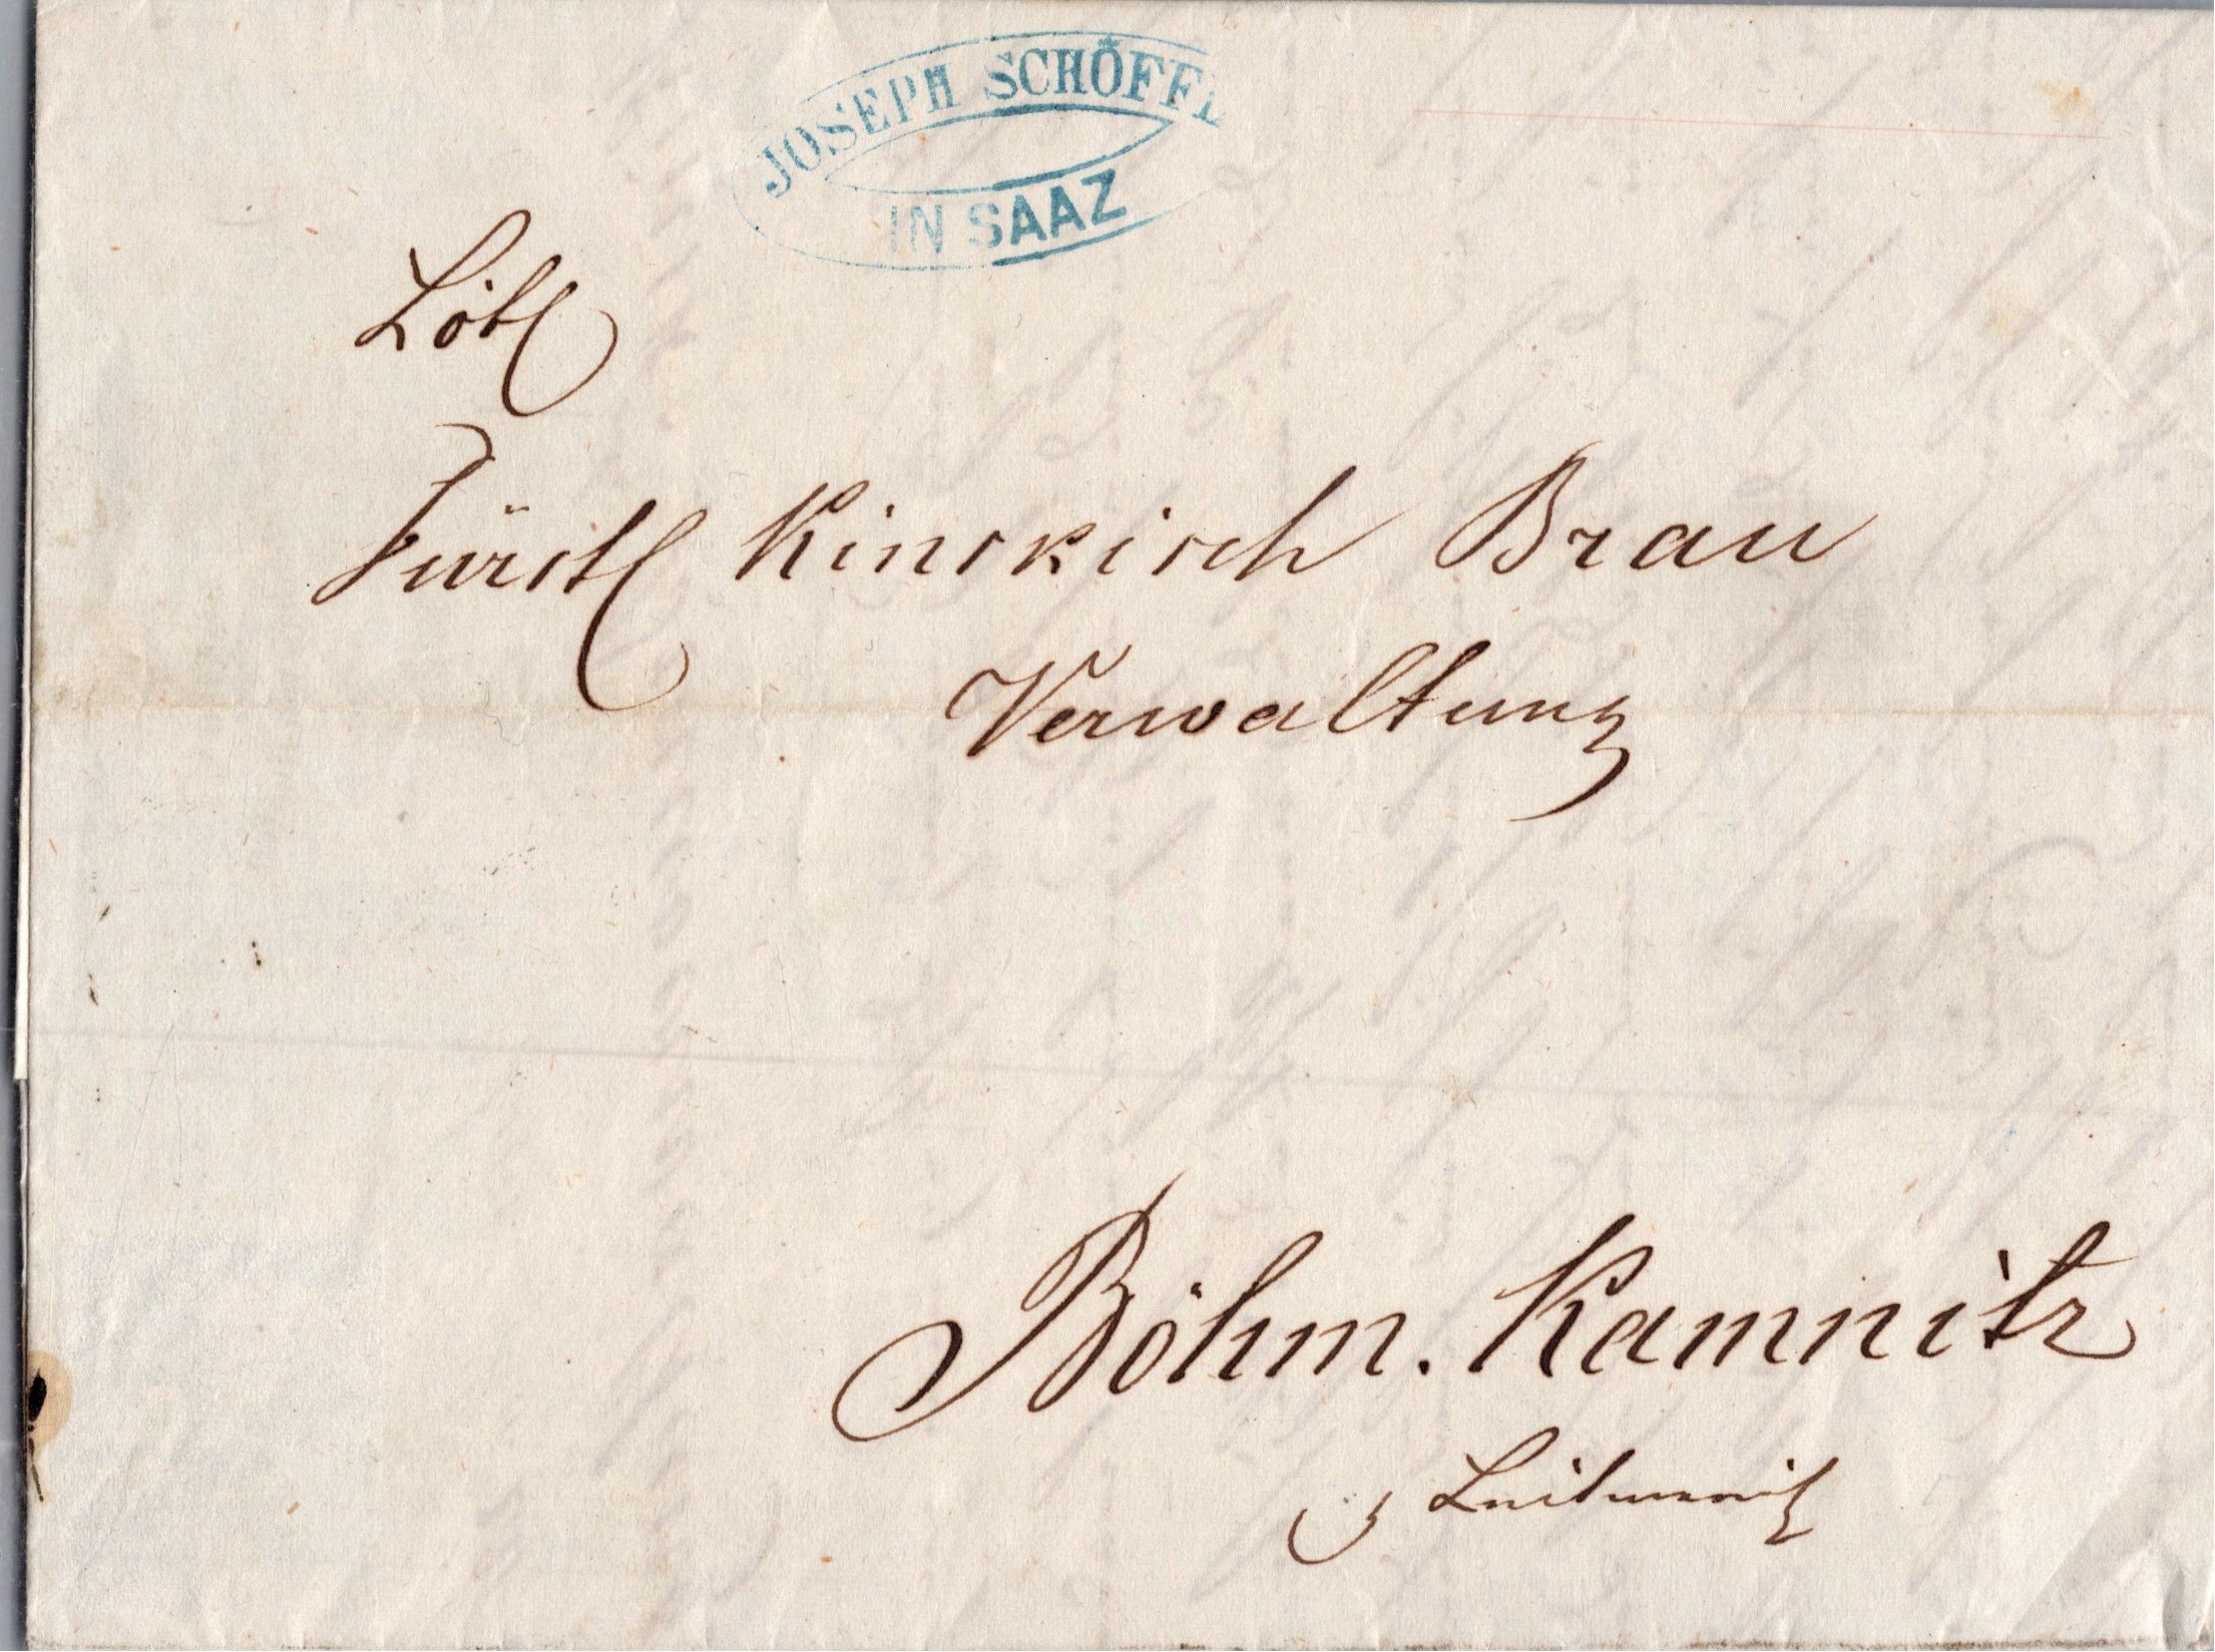 JOSEPH SCHÖFFL
IN SAAZ
Löbl
Fürstl Kinskisch Brau
Verwaltung
Böhm. Kamnitz
Leitmeritz